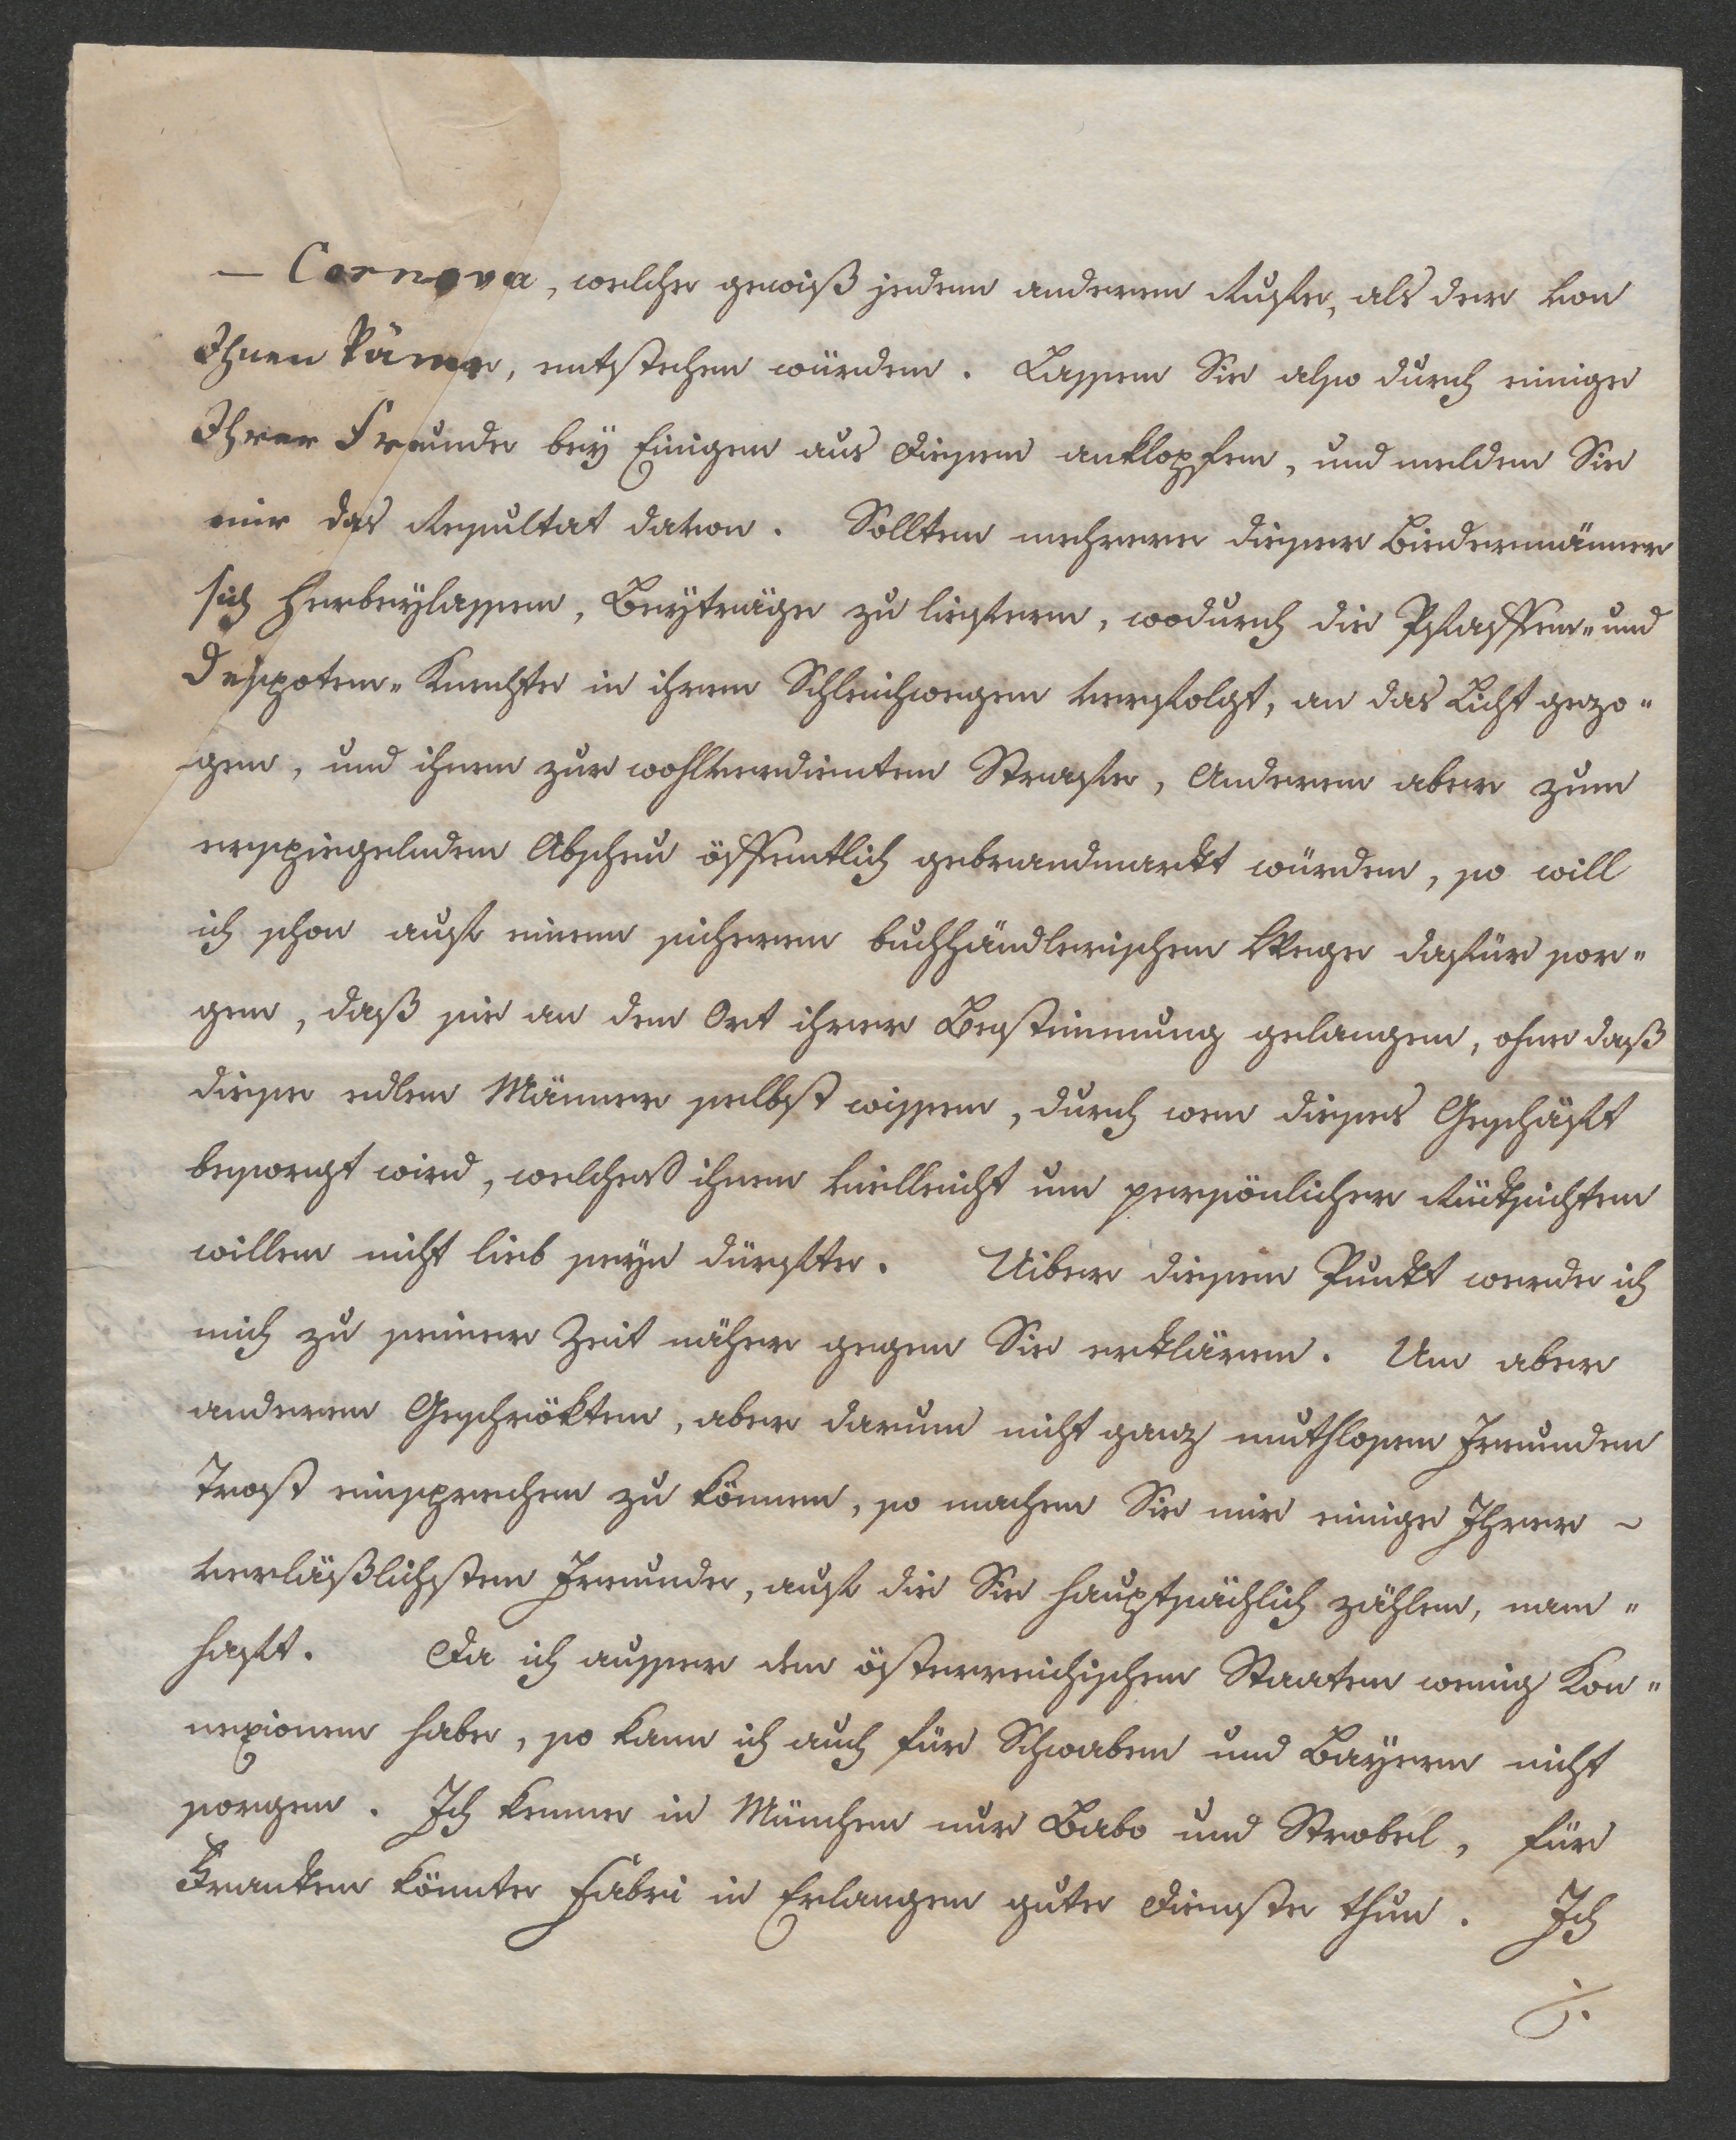 — Cornova, welche gewiß jedem anderen Rufe, als der von
Ihnen käme, entstehen würden. Lassen Sie also durch einige
Ihrer Freunde bey Einigen aus diesen anklopfen, und melden Sie
mir das Resultat davon. Sollten mehrere dieser Biedermänner
sich herbeylassen, Beyträge zu liefern, wodurch die Pfaffen- und
Despoten-Knechte in ihren Schleichwegen verfolgt, an das Licht gezo-
gen, und ihnen zur wohlverdienten Strafe, Anderen aber zum
erspiegelnden Abscheu öffentlich gebrandmarkt würden, so will
ich schon auf einem sicheren buchhändlerischen Wege dafür sor-
gen, daß sie an den Ort ihrer Bestimmung gelangen, ohne daß
diese edlen Männer selbst wissen, durch wen dieses Geschäft
besorgt wird, welches ihnen vielleicht um persönlicher Rücksichten
willen nicht lieb seyn dürfte. Uiber diesen Punkt werde ich
mich zu seiner Zeit näher gegen Sie erklären. Um aber
anderen Geschrökten, aber darum nicht ganz muthlosen Freunden
Trost einsprechen zu können, so machen Sie mir einige Ihrer
verläßlichsten Freunde, auf die Sie hauptsächlich zählen, nam-
haft. Da ich ausser den österreichischen Staaten wenig Kon-
nexionen habe, so kann ich auch für Schwaben und Bayern nicht
sorgen. Ich kenne in München nur Babo und Strobel, für
Franken könnte Fabri in Erlangen gute Dienste thun. Ich
./.